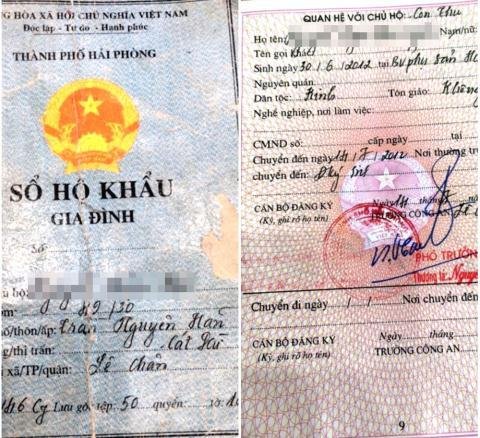 NG HÒA XÃ HỘI CHỦ NGHĨA VIỆT NAM
Độc lập - Tự do - Hạnh phúc
THÀNH PHỐ HẢI PHÒNG
SỔ HỘ KHẨU
GIA ĐÌNH
Số
hộ:
49/30
số/thôn/ấp: Trần Nguyên Hãn
g/thị trấn: Cát Dài
xã/TP/quận: Lê Chân
Lưu gốc tệp 50 quyển: tờ
QUAN HỆ VỚI CHỦ HỘ: Con
Họ tên: Nam/nữ:
Tên gọi khác
Sinh ngày 30/6/2012 tại BV phụ sản
Nguyên quán
Dân tộc: Kinh Tôn giáo: Không
Nghề nghiệp, nơi làm việc:
CMND số: cấp ngày tại
Chuyển đến ngày 14/7/2012 Nơi thường trú
chuyển đến: ĐKý sinh
CÁN BỘ ĐĂNG KÝ Ngày 14 tháng 7
(Ký, ghi rõ họ tên) TRƯỞNG CÔNG AN
PHÓ TRƯỞN
Thượng tá: Nguyễn
Chuyển đi ngày / / Nơi chuyển đến
CÁN BỘ ĐĂNG KÝ Ngày tháng
(Ký, ghi rõ họ tên) TRƯỞNG CÔNG AN
9